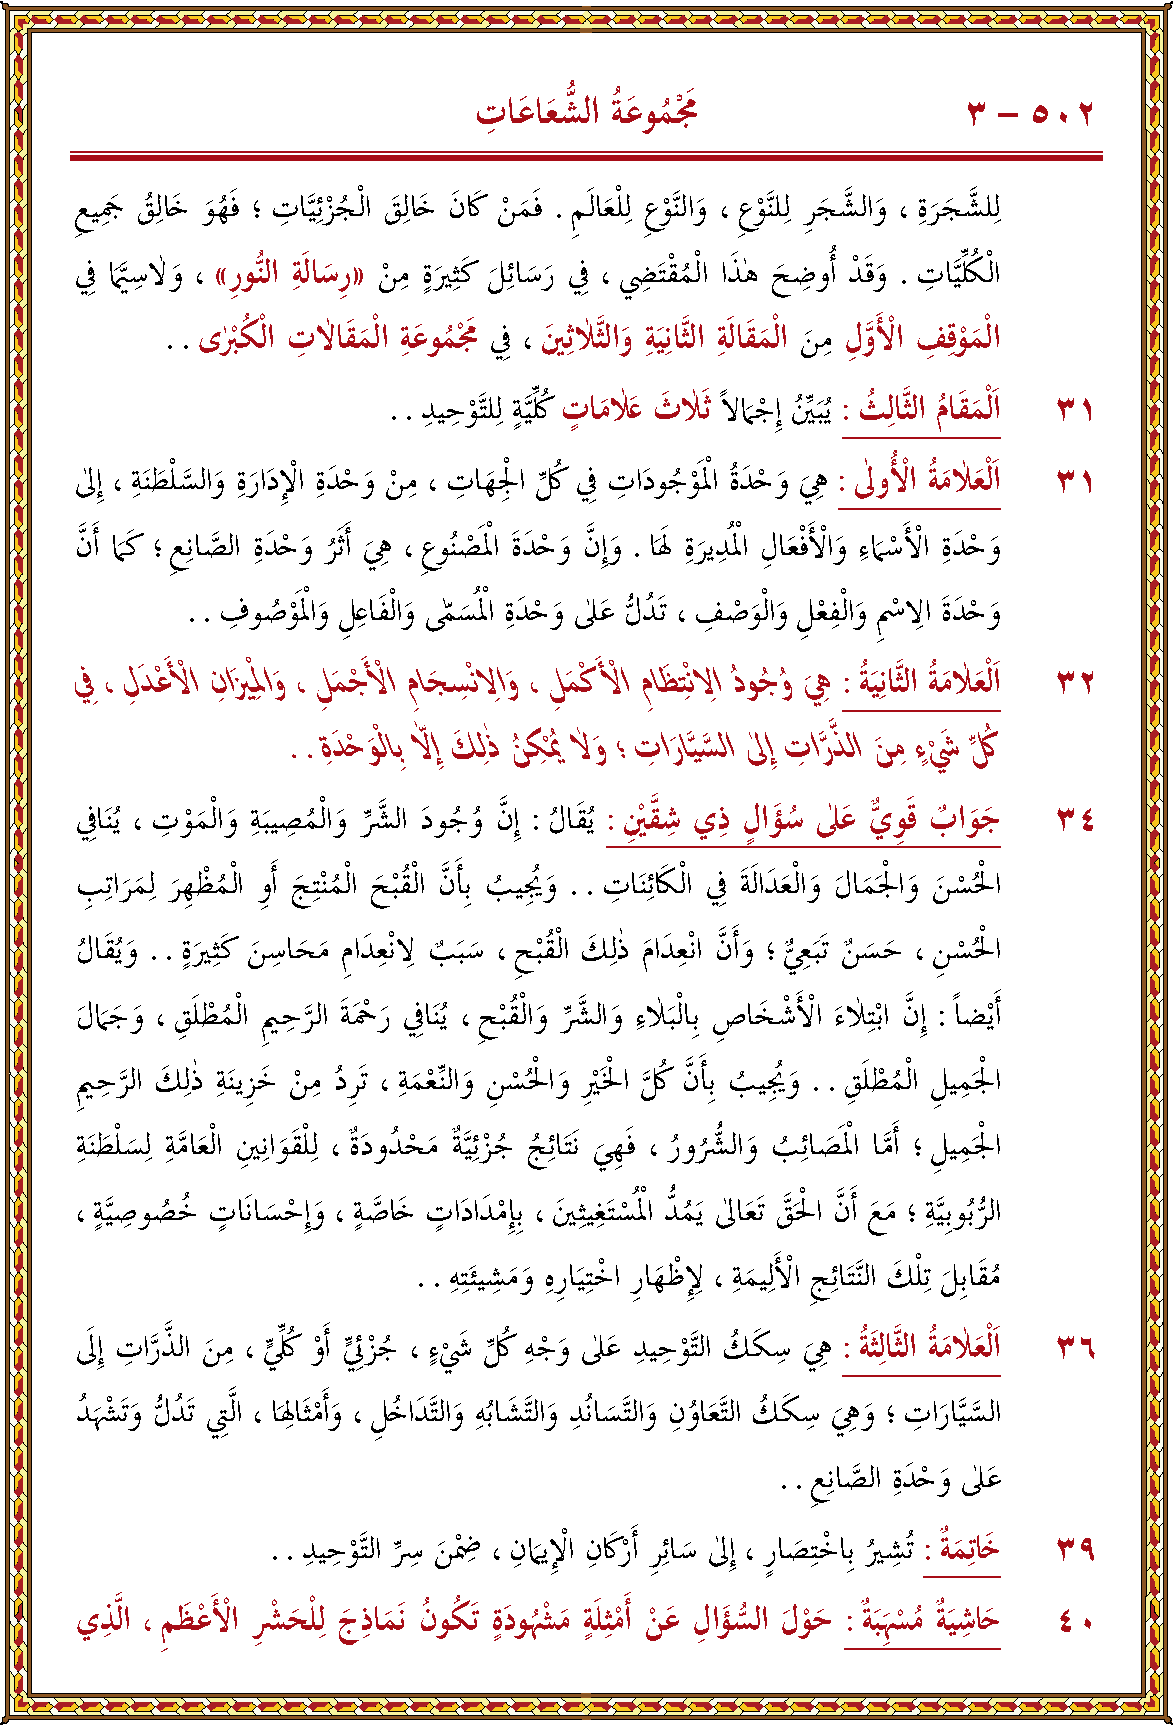 ٥٠٢ – ٣ مَجْمُوعَةُ الشُّعَاعَاتِ
لِلشَّجَرَةِ ، وَالشَّجَرِ لِلنَّوْعِ ، وَالنَّوْعِ لِلْعَالَمِ . فَمَنْ كَانَ خَالِقَ الْجُزْئِيَّاتِ ؛ فَهُوَ خَالِقُ جَمِيعِ
الْكُلِّيَّاتِ . وَقَدْ أُوضِحَ هٰذَا الْمُقْتَضِي ، فِي رَسَائِلَ كَثِيرَةٍ مِنْ «رِسَالَةِ النُّورِ» ، وَلَاسِيَّمَا فِي
الْمَوْقِفِ الْأَوَّلِ مِنَ الْمَقَالَةِ الثَّانِيَةِ وَالثَّلَاثِينَ ، فِي مَجْمُوعَةِ الْمَقَالَاتِ الْكُبْرٰى . .
٣١ اَلْمَقَامُ الثَّالِثُ : يُبَيِّنُ إِجْمَالاً ثَلَاثَ عَلَامَاتٍ كُلِّيَّةٍ لِلتَّوْحِيدِ . .
٣١ اَلْعَلَامَةُ الْأُولٰى : هِيَ وَحْدَةُ الْمَوْجُودَاتِ فِي كُلِّ الْجِهَاتِ ، مِنْ وَحْدَةِ الْإِدَارَةِ وَالسَّلْطَنَةِ ، إِلٰى
وَحْدَةِ الْأَسْمَاءِ وَالْأَفْعَالِ الْمُدِيرَةِ لَهَا . وَإِنَّ وَحْدَةَ الْمَصْنُوعِ ، هِيَ أَثَرُ وَحْدَةِ الصَّانِعِ ؛ كَمَا أَنَّ
وَحْدَةَ الِاسْمِ وَالْفِعْلِ وَالْوَصْفِ ، تَدُلُّ عَلٰى وَحْدَةِ الْمُسَمّٰى وَالْفَاعِلِ وَالْمَوْصُوفِ . .
٣٢ اَلْعَلَامَةُ الثَّانِيَةُ : هِيَ وُجُودُ الِانْتِظَامِ الْأَكْمَلِ ، وَالِانْسِجَامِ الْأَجْمَلِ ، وَالْمِيْزَانِ الْأَعْدَلِ ، فِي
كُلِّ شَيْءٍ مِنَ الذَّرَّاتِ إِلٰى السَّيَّارَاتِ ؛ وَلَا يُمْكِنُ ذٰلِكَ إِلَّا بِالْوَحْدَةِ . .
٣٤ جَوَابٌ قَوِيٌّ عَلٰى سُؤَالٍ ذِي شِقَّيْنِ : يُقَالُ : إِنَّ وُجُودَ الشَّرِّ وَالْمُصِيبَةِ وَالْمَوْتِ ، يُنَافِي
الْحُسْنَ وَالْجَمَالَ وَالْعَدَالَةَ فِي الْكَائِنَاتِ . . وَيُجِيبُ بِأَنَّ الْقُبْحَ الْمُنْتِجَ أَوِ الْمُظْهِرَ لِمَرَاتِبِ
الْحُسْنِ ، حَسَنٌ تَبَعِيٌّ ؛ وَأَنَّ انْعِدَامَ ذٰلِكَ الْقُبْحِ ، سَبَبٌ لِانْعِدَامِ مَحَاسِنَ كَثِيرَةٍ . . وَيُقَالُ
أَيْضاً : إِنَّ ابْتِلَاءَ الْأَشْخَاصِ بِالْبَلَاءِ وَالشَّرِّ وَالْقُبْحِ ، يُنَافِي رَحْمَةَ الرَّحِيمِ الْمُطْلَقِ ، وَجَمَالَ
الْجَمِيلِ الْمُطْلَقِ . . وَيُجِيبُ بِأَنَّ كُلَّ الْخَيْرِ وَالْحُسْنِ وَالنِّعْمَةِ ، تَرِدُ مِنْ خَزِينَةِ ذٰلِكَ الرَّحِيمِ
الْجَمِيلِ ؛ أَمَّا الْمَصَائِبُ وَالشُّرُورُ ، فَهِيَ نَتَائِجُ جُزْئِيَّةٌ مَحْدُودَةٌ ، لِلْقَوَانِينِ الْعَامَّةِ لِسَلْطَنَةِ
الرُّبُوبِيَّةِ ؛ مَعَ أَنَّ الْحَقَّ تَعَالٰى يَمُدُّ الْمُسْتَغِيثِينَ ، بِإِمْدَادَاتٍ خَاصَّةٍ ، وَإِحْسَانَاتٍ خُصُوصِيَّةٍ ،
مُقَابِلَ تِلْكَ النَّتَائِجِ الْأَلِيمَةِ ، لِإِظْهَارِ اخْتِيَارِهِ وَمَشِيئَتِهِ . .
٣٦ اَلْعَلَامَةُ الثَّالِثَةُ : هِيَ سِكَكُ التَّوْحِيدِ عَلٰى وَجْهِ كُلِّ شَيْءٍ ، جُزْئِيٍّ أَوْ كُلِّيٍّ ، مِنَ الذَّرَّاتِ إِلَى
السَّيَّارَاتِ ؛ وَهِيَ سِكَكُ التَّعَاوُنِ وَالتَّسَانُدِ وَالتَّشَابُهِ وَالتَّدَاخُلِ ، وَأَمْثَالِهَا ، الَّتِي تَدُلُّ وَتَشْهَدُ
عَلٰى وَحْدَةِ الصَّانِعِ . .
٣٩ خَاتِمَةٌ : تُشِيرُ بِاخْتِصَارٍ ، إِلٰى سَائِرِ أَرْكَانِ الْإِيمَانِ ، ضِمْنَ سِرِّ التَّوْحِيدِ . .
٤٠ حَاشِيَةٌ مُسْهَبَةٌ : حَوْلَ السُّؤَالِ عَنْ أَمْثِلَةٍ مَشْهُودَةٍ تَكُونُ نَمَاذِجَ لِلْحَشْرِ الْأَعْظَمِ ، الَّذِي